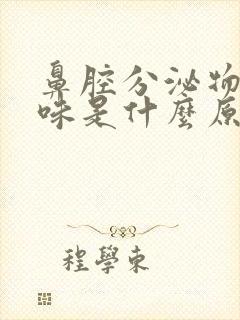 鼻腔分泌物
味是什麼原
程學東